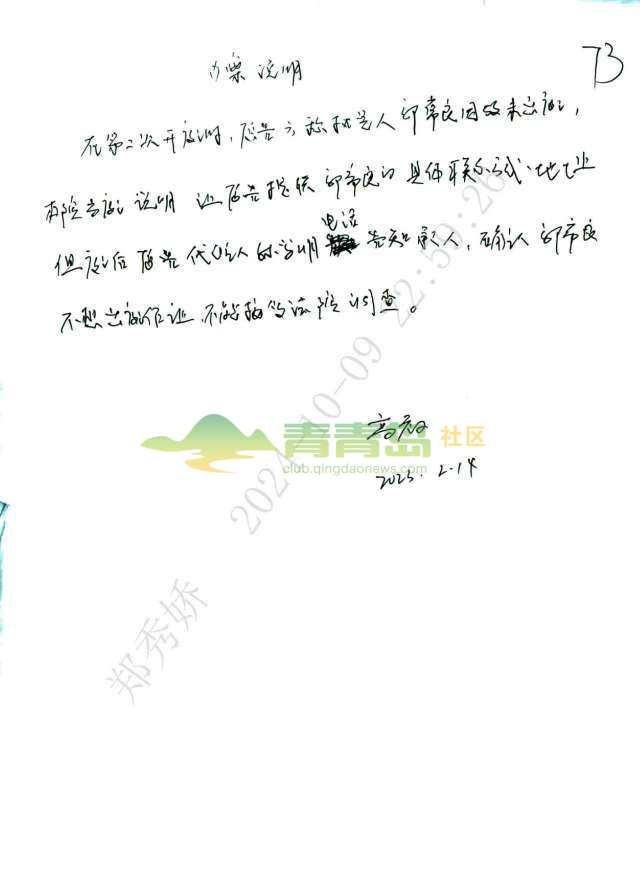 办案说明
73
在第二次开庭时,原告方称其证人邵常良因故未出庭,
本院当庭说明 让原告提供邵常良的具体联系方式、地址
但庭后原告代理人 明电话告知承办人,确认邵常良
不想出庭作证、不能接受法院调查。
高
2023.2.14
青青岛社区
club.qingdaonews.com
郑秀娇 2024-10-09 22:59:26